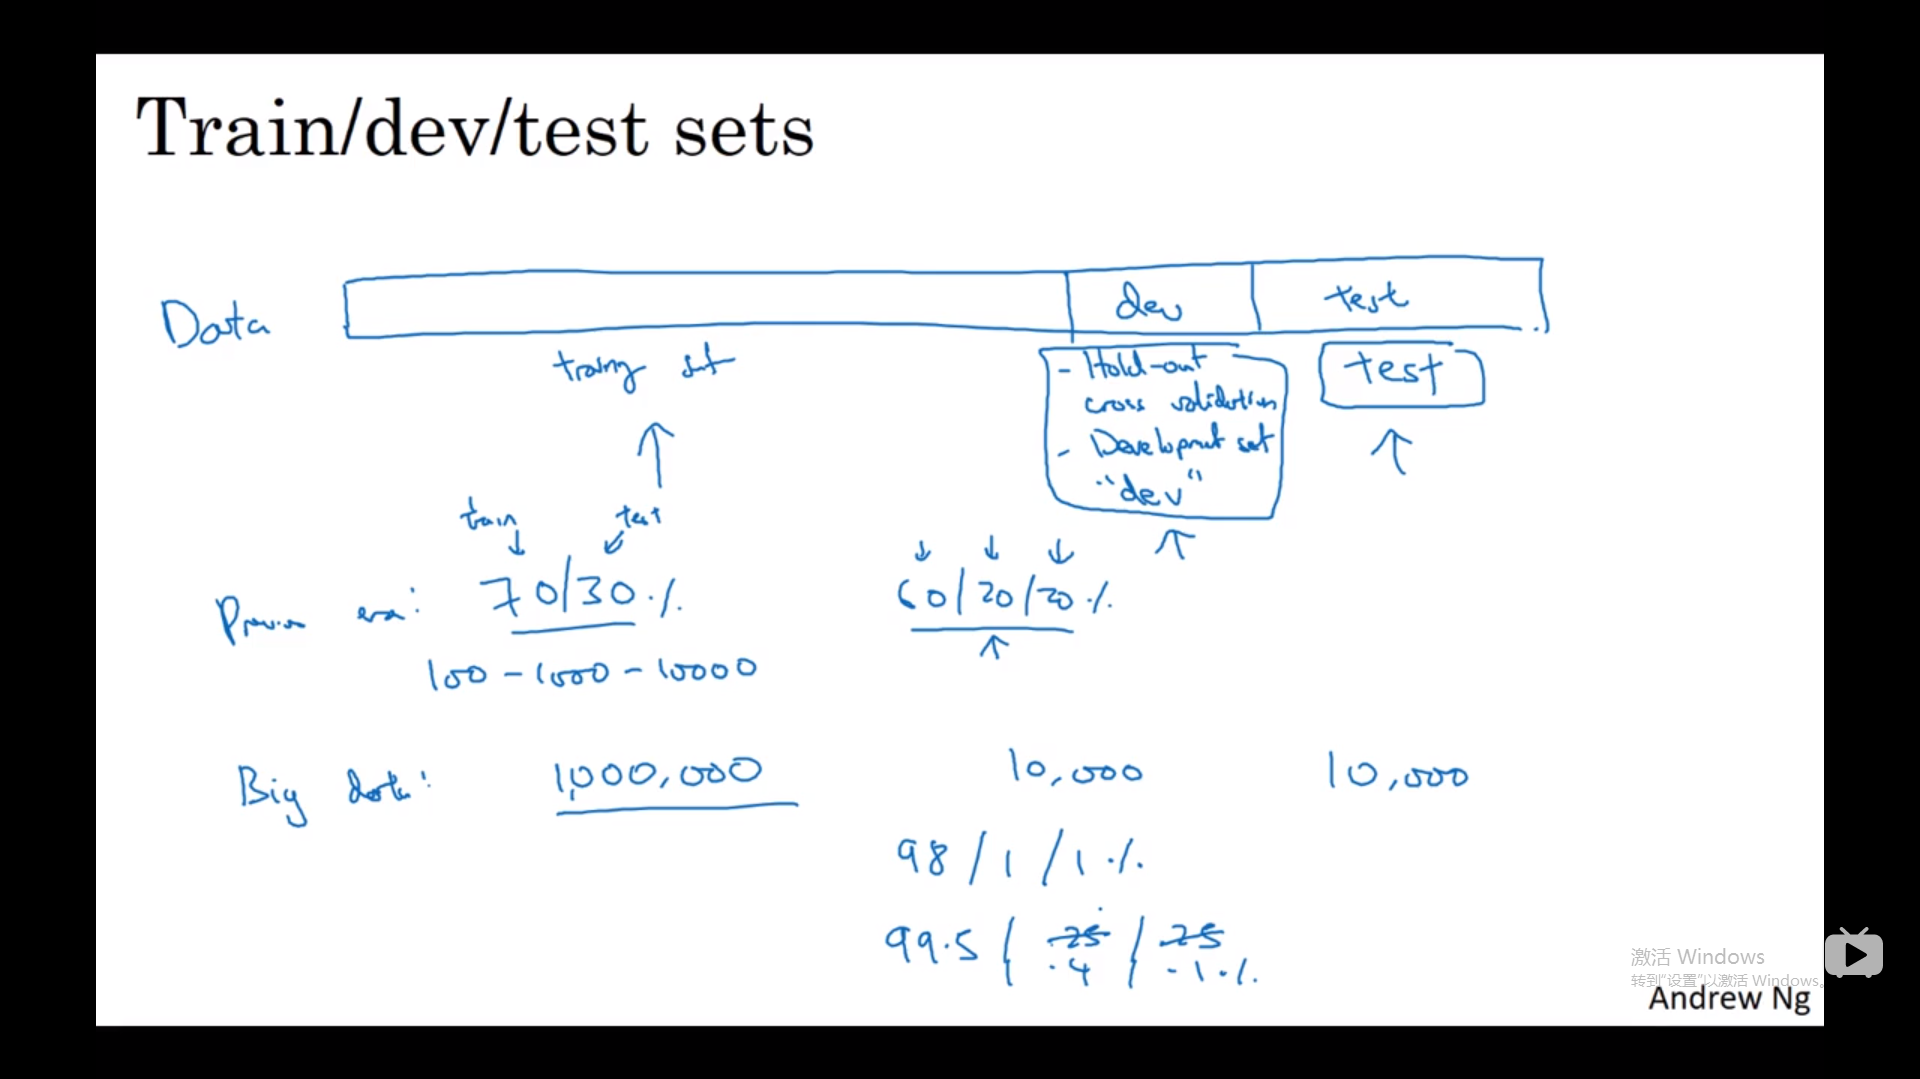 Train/dev/test sets
Data
dev
test
training set
- Hold-out
cross validation
- Development set
"dev"
test
train
test
Previous era:
70/30%
60/20/20%
100-1000-10000
Big data:
1,000,000
10,000
10,000
98/1/1%
99.5/.25/.25
.4 .1%
激活 Windows
转到"设置"以激活 Windows。
Andrew Ng